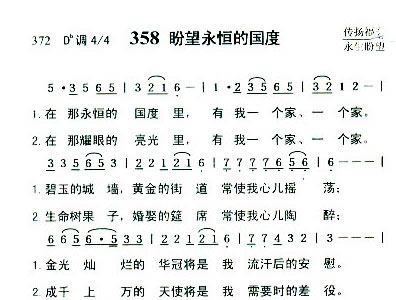 372 Dᵇ调 4/4 358 盼望永恒的国度 传扬福音
永生盼望
5·3565 | 3216- | 2·35653 | 1--- |
1.在 那永恒的 国度 里， 有 我一 个家、一 个家。
2.在 那耀眼的 亮光 里， 有 我一 个家、一 个家。
335653 | 1216- | 1 777·7 | 777656 | 6--- |
1.碧玉的城 墙，黄金的街 道 常使我心儿摇 荡；
2.生命树果 子，婚娶的筵 席 常使我心儿陶 醉；
1.金光 灿 烂的 华冠将是 我 流汗后的安 慰。
2.成千 上 万的 天使将是 我 需要时的差 役。